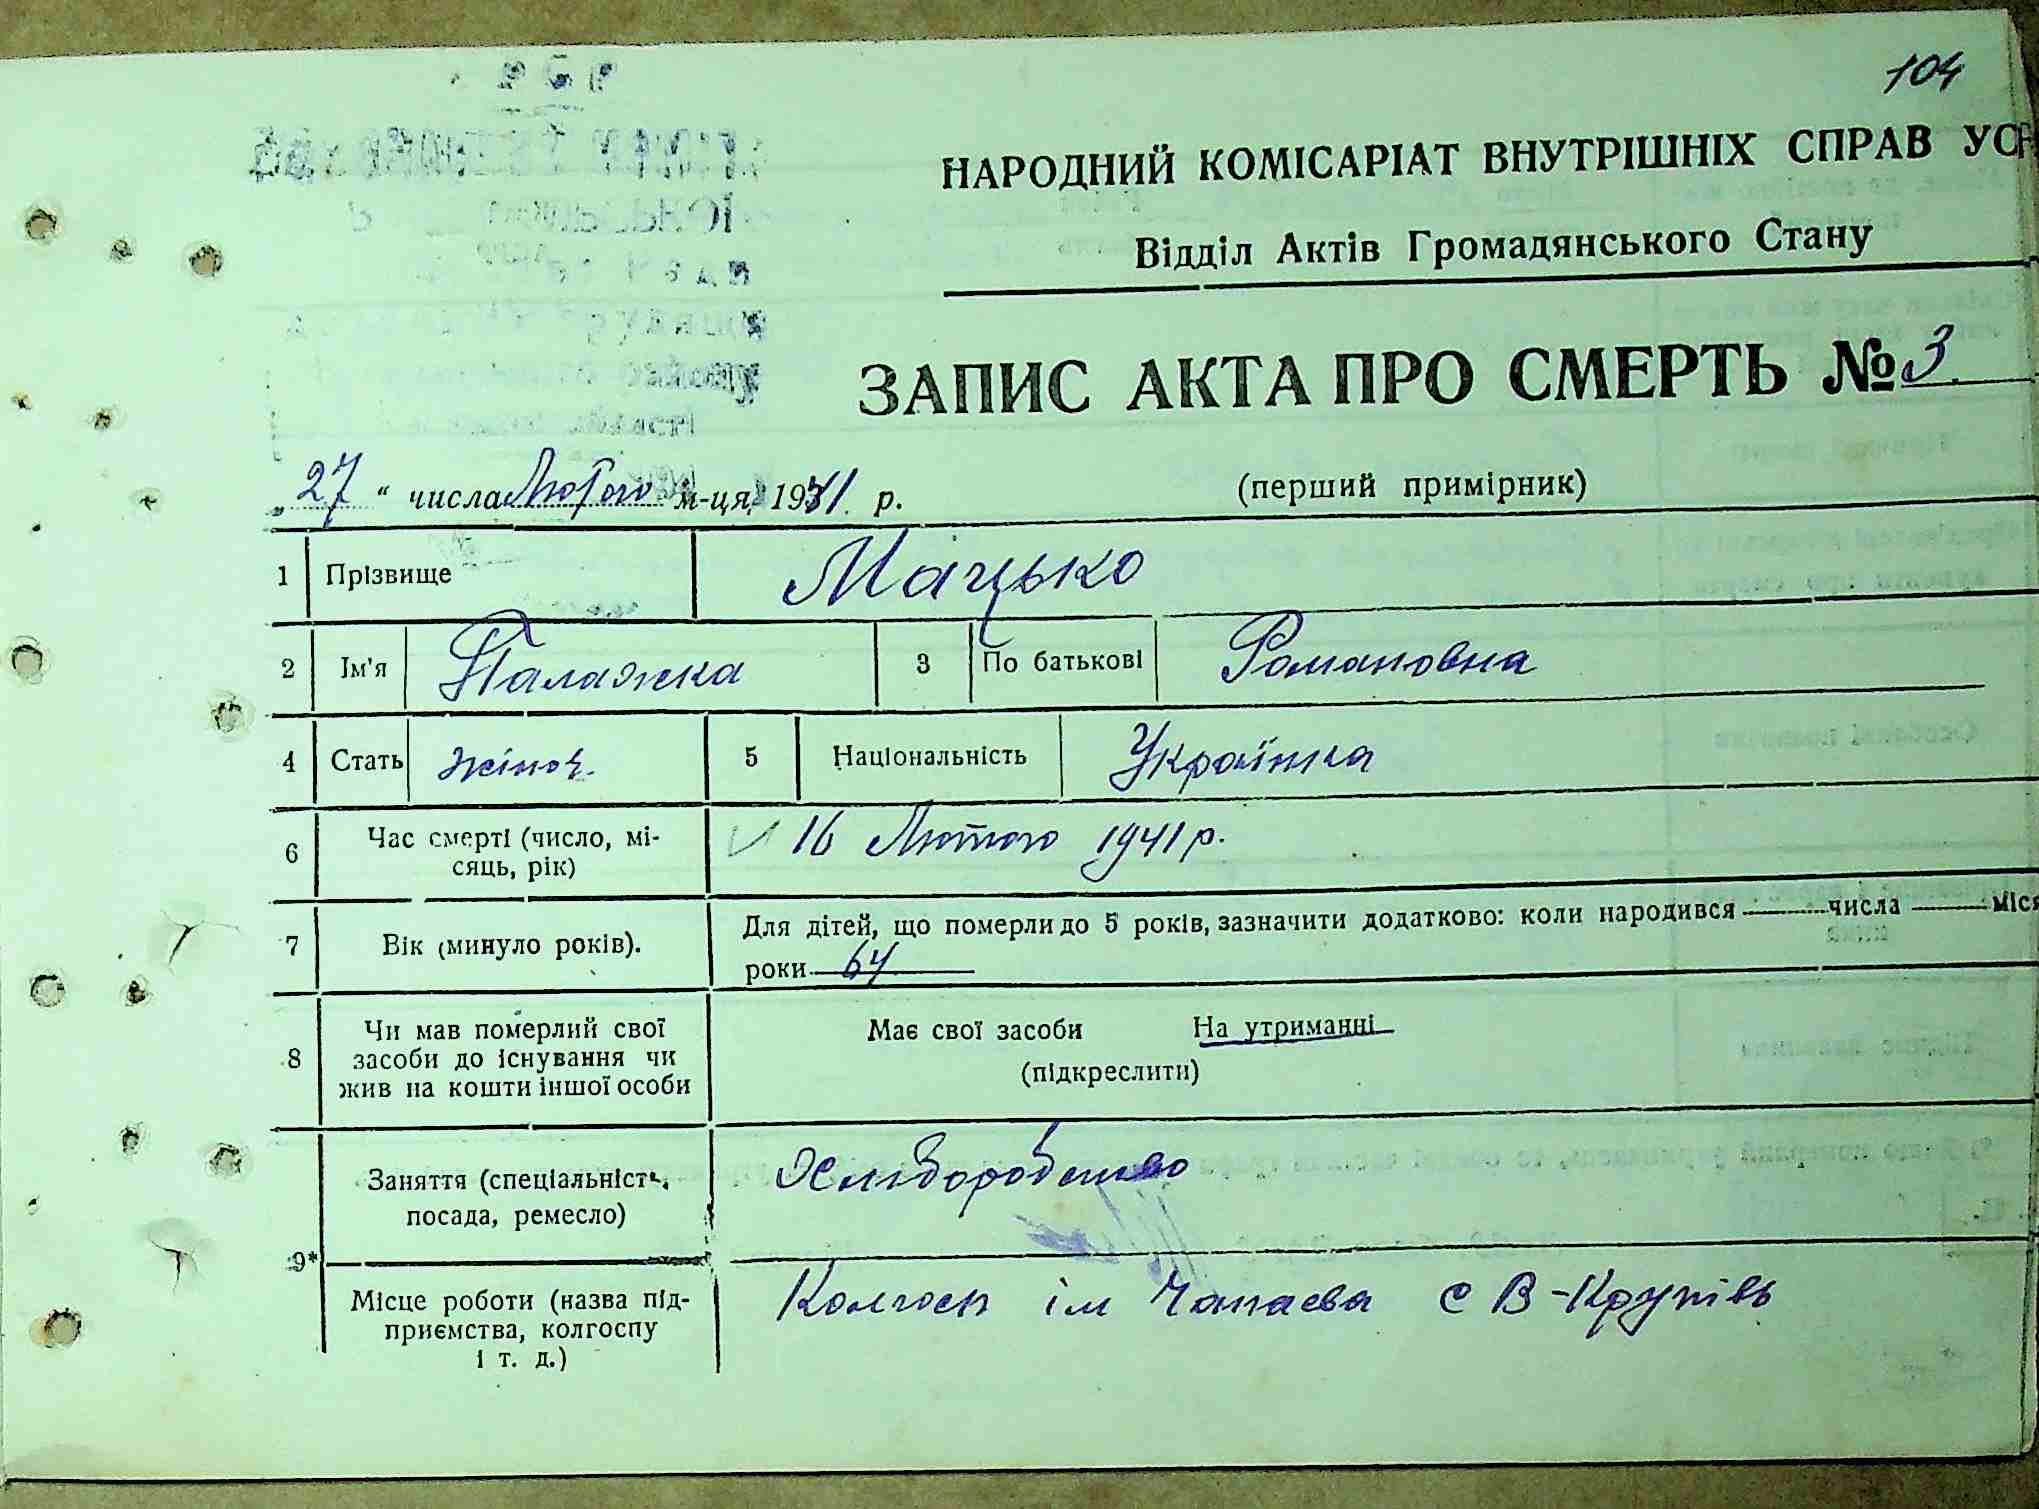 104
НАРОДНИЙ КОМІСАРІАТ ВНУТРІШНІХ СПРАВ УСР
Відділ Актів Громадянського Стану
ЗАПИС АКТА ПРО СМЕРТЬ № 3
„ 27 “ числа Лютого м-ця, 1941 р. (перший примірник)
1 Прізвище Мацько
2 Ім'я Палажка 3 По батькові Романовна
4 Стать жіноч. 5 Національність Українка
6 Час смерті (число, мі-
сяць, рік) 16 Лютого 1941 р.
7 Вік (минуло років). Для дітей, що померли до 5 років, зазначити додатково: коли народився числа міся
роки 64
8 Чи мав померлий свої
засоби до існування чи
жив на кошти іншої особи
Має свої засоби На утриманні
(підкреслити)
9* Заняття (спеціальність,
посада, ремесло) Хліборобство
Місце роботи (назва під-
приємства, колгоспу
і т. д.) Колгосп ім Чапаєва с В-Крупіль